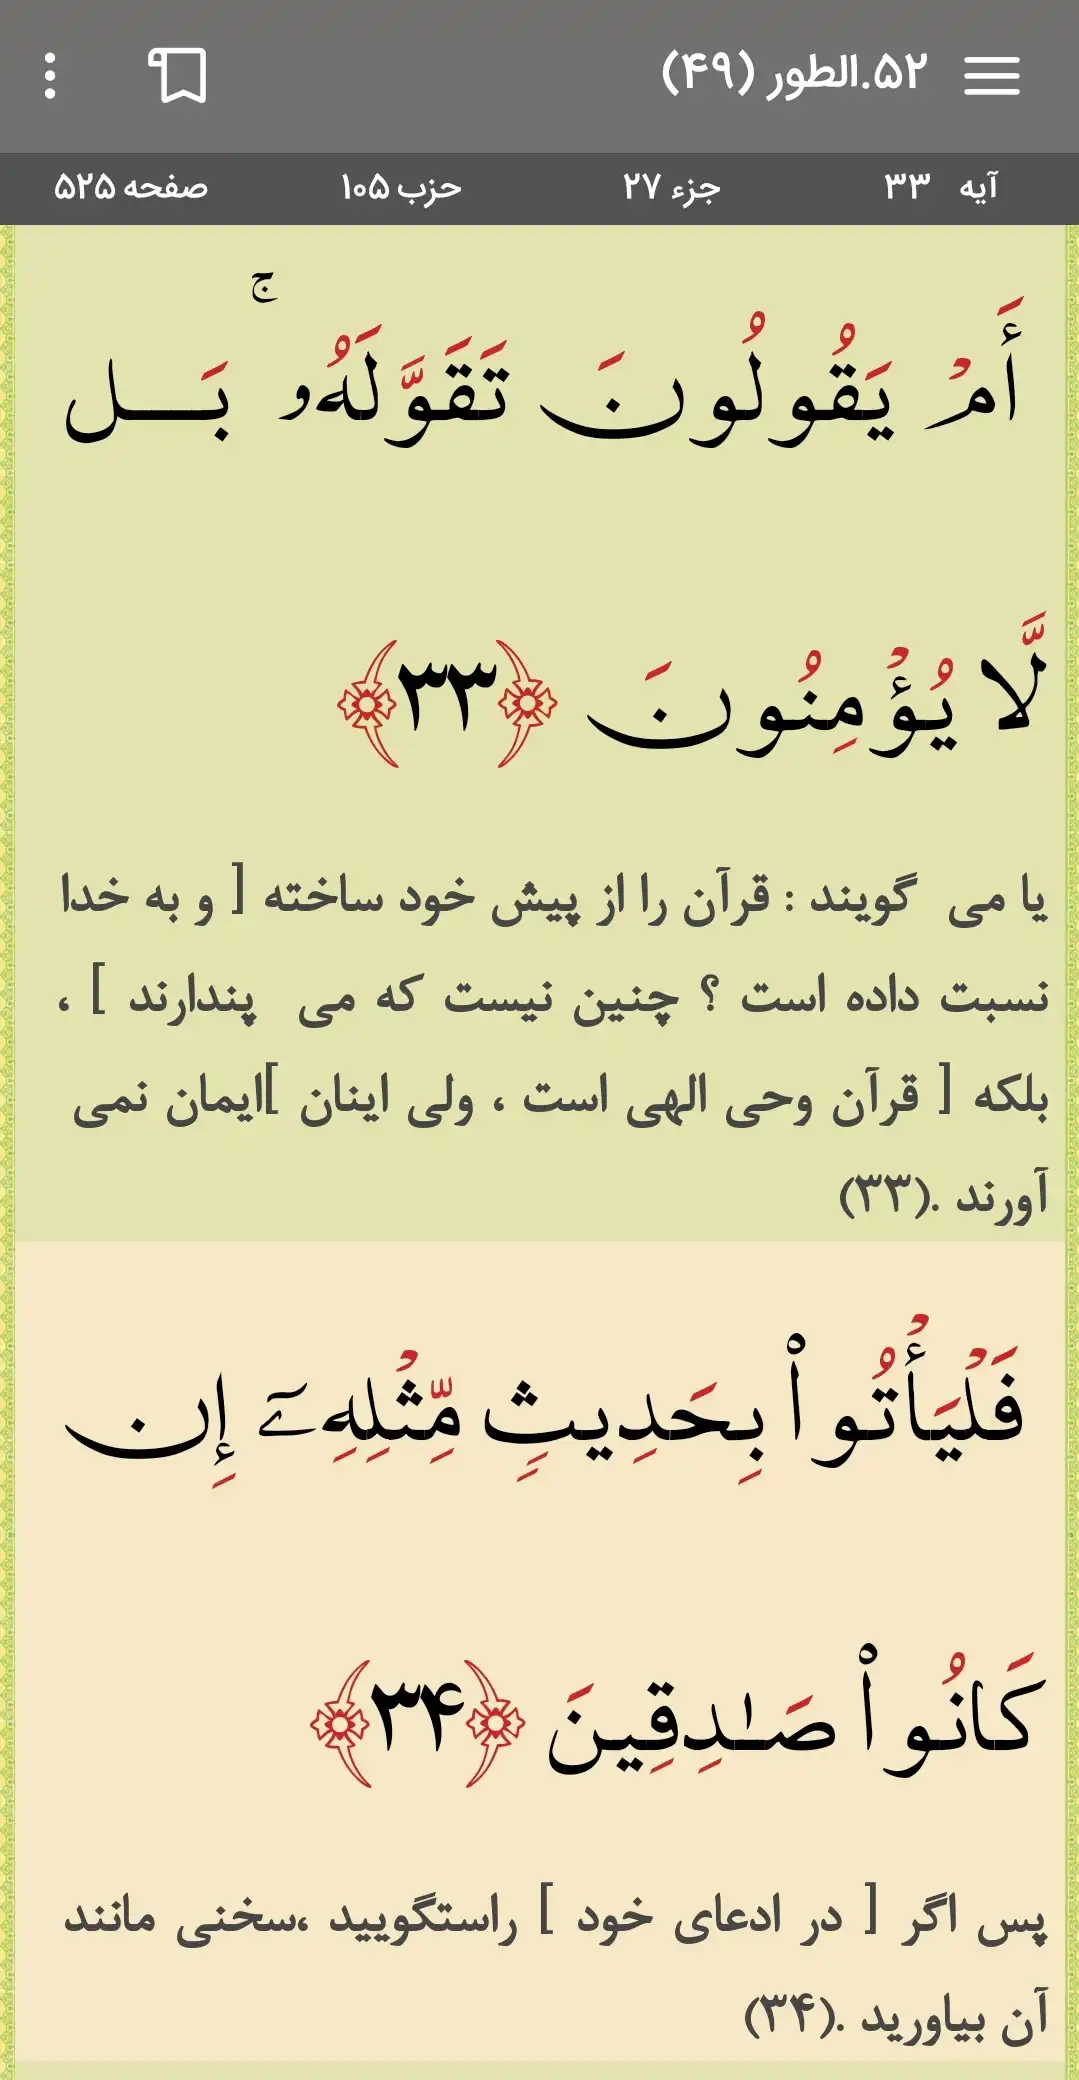 ۵۲.الطور (۴۹)
آیه ۳۳ جزء ۲۷ حزب ۱۰۵ صفحه ۵۲۵
أَمْ يَقُولُونَ تَقَوَّلَهُۥ ۚ بَل
لَّا يُؤْمِنُونَ ﴿۳۳﴾
یا می گویند : قرآن را از پیش خود ساخته [ و به خدا
نسبت داده است ؟ چنین نیست که می پندارند ] ،
بلکه [ قرآن وحی الهی است ، ولی اینان ]ایمان نمی
آورند .(۳۳)
فَلْيَأْتُوا۟ بِحَدِيثٍ مِّثْلِهِۦٓ إِن
كَانُوا۟ صَـٰدِقِينَ ﴿۳۴﴾
پس اگر [ در ادعای خود ] راستگویید ،سخنی مانند
آن بیاورید .(۳۴)